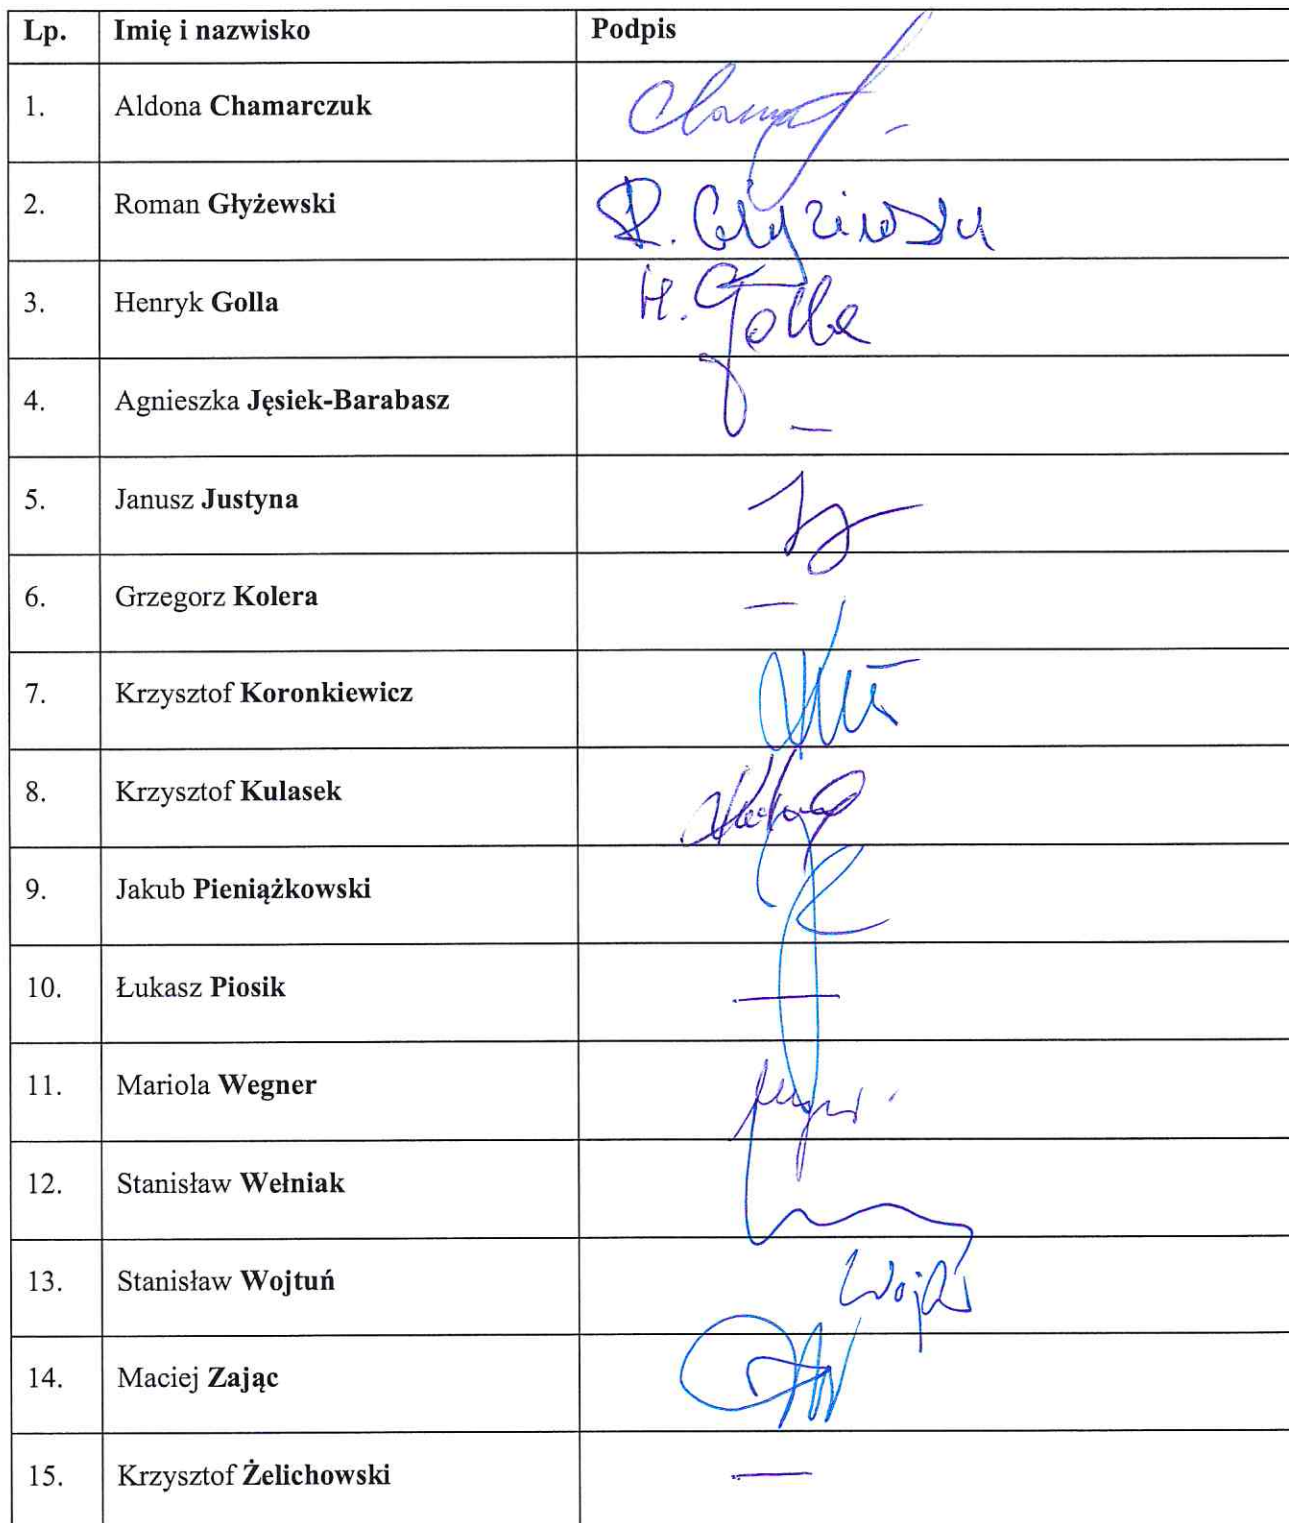 Lp. Imię i nazwisko Podpis
1. Aldona Chamarczuk
2. Roman Głyżewski
3. Henryk Golla H. Golla
4. Agnieszka Jęsiek-Barabasz –
5. Janusz Justyna
6. Grzegorz Kolera –
7. Krzysztof Koronkiewicz
8. Krzysztof Kulasek
9. Jakub Pieniążkowski
10. Łukasz Piosik –
11. Mariola Wegner
12. Stanisław Wełniak
13. Stanisław Wojtuń
14. Maciej Zając
15. Krzysztof Żelichowski –